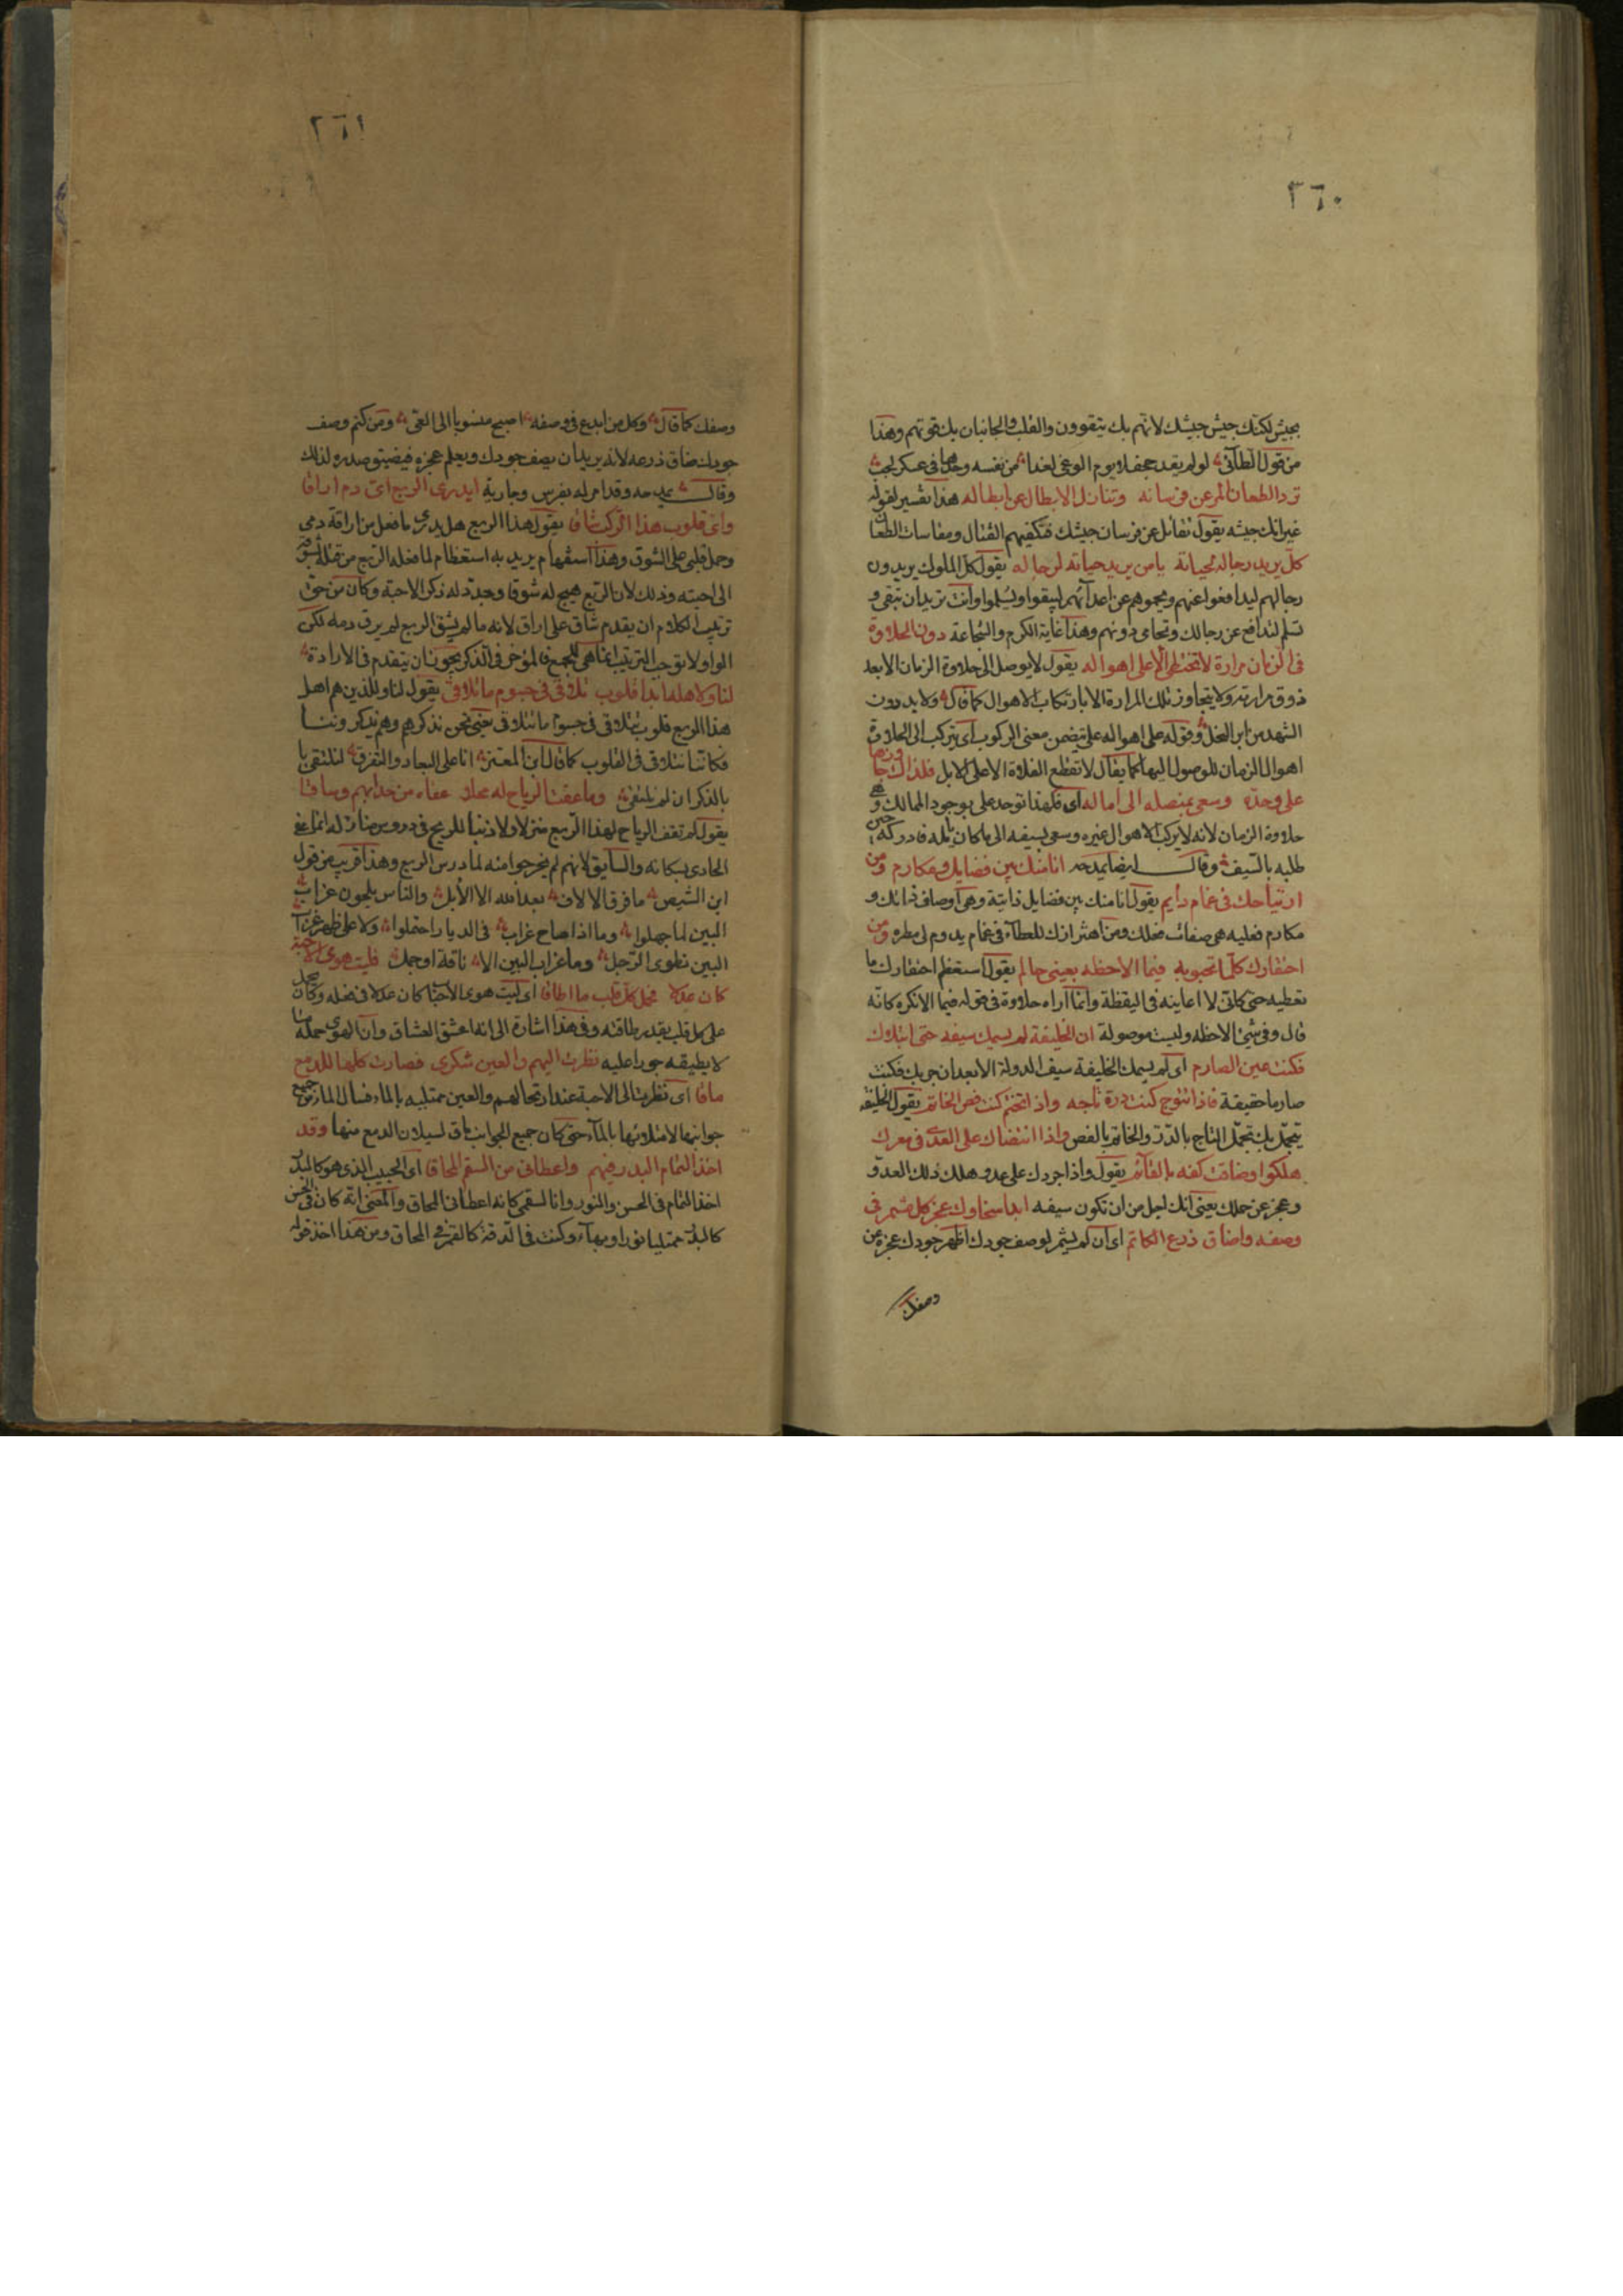 ٣٦٠
بجيش لكنك جيش جيشك لانهم بك يتقوون والقلب والجانبان بك قوتهم وهذا
من قول الطآئى لو لم يقد جحفلا يوم الوغى لغدا من نفسه وحدها فى عسكر لجب
ترد الطعان المر عن فرسانه وتنازل الابطال عن ابطاله هذا تفسير لقوله
غير انك جيشه يقول تقاتل عن فرسان جيشك فتكفيهم القتال ومقاسات الطعان
كل يريد رجاله لحياته يا من يريد حياته لرجاله يقول كل الملوك يريدون
رجالهم ليدافعوا عنهم ويحموهم عن اعدآئهم ليبقوا ويسلموا وانت تريد ان تبقى و
تسلم لتدافع عن رجالك وتحامى دونهم وهذا غاية الكرم والشجاعة دون الحلاوة
فى الزمان مرارة لا تختطى الا على اهواله يقول لا يوصل الى حلاوة الزمان الا بعد
ذوق مرارته ولا يتجاوز تلك المرارة الا بارتكاب الاهوال كما قال ولا بد دون
الشهد من ابر النحل وقوله على اهواله على يتضمن معنى الركوب اى يركب الى الحلاوة
اهوال الزمان للوصول اليها كما يقال لا تقطع الفلاة الا على الابل فلذاك جاوزها
على وحده وسعى بمنصله الى اماله اى فلهذا توحد على بوجود الممالك وهى
حلاوة الزمان لانه لا يركب الاهوال غيره وسعى بسيفه الى ما كان يأمله فادركه حين
طلبه بالسيف وقال ايضا يمدحه انا منك بين فضايل ومكارم ومن
ارتياحك فى غمام دايم يقول انا منك بين فضايل ذاتية وهى اوصاف ذاتك و
مكارم فعليه هى صفات فعلك ومن اهتزازك للعطآء فى غمام يدوم لى مطره ومن
احتقارك كل ما تحبو به فيما الاحظه بعينى حالم يقول استعظم احتقارك ما
تعطيه حتى كانى لا اعاينه فى اليقظة وانما اراه حلاوة فى قوله فيما الا نكره كانه
قال وفى شئ الاحظه وليست موصولة ان الخليفة لم يسمك سيفه حتى ابتلاك
فكنت عين الصارم اى لم يسمك الخليفة سيف الدولة الا بعد ان جربك فكنت
صارما حقيقة فاذا تتوج كنت درة تاجه واذا تختم كنت فص الخاتم يقول الخليفة
يتجمل بك تجمل التاج بالدرر والخاتم بالفص واذا انتضاك على العدى فى معرك
هلكوا وضاقت كفه بالقآئم يقول واذا جردك على عدو هلك ذلك العدو
وعجز عن حملك يعنى انك اجل من ان تكون سيفه ابدا سخاوك عجز كل مشمر فى
وصفه واضاق ذرع الكاتم اى ان لم يشمر لوصف جودك اظهر جودك عجزه عن
وصفك
٣٦١
وصفك كما قال وكل من ابدع فى وصفه اصبح منسوبا الى العى ومن كتم وصف
جودك ضاق ذرعه لانه يريد ان يصف جودك ويعلم عجزه فيضيق صدره لذلك
وقال يمدحه وقد امر له بفرس وجارية ايدرى الربع اى دم اراقا
واى قلوب هذا الركب شاق يقول هذا الربع هل يدرى ما فعل من اراقة دمى
وحمل قلبى على الشوق وهذا استفهام يريد به استعظام لما فعله الربع من قتله بشوقه
الى احبته وذلك لان الربع هيج له شوقا وجدد له ذكر الاحبة وكان من حق
ترتيب الكلام ان يقدم شاق على اراق لانه ما لم يشق الربع لم يرق دمه لكن
الواو لا توجب الترتيب انما هى للجمع فالمؤخر فى الذكر يجوز ان يتقدم فى الارادة
لنا ولاهله ابدا قلوب تلاقى فى جسوم ما تلاقى يقول لنا وللذين هم اهل
هذا الربع قلوب تتلاقى فى جسوم ما تتلاقى يعنى نحن نذكرهم وهم يذكروننا
فكاننا نتلاقى فى القلوب كما قال ابن المعتز انا على البعاد والتفرق لنلتقى با
بالذكر ان لم نلتق وما عفت الرياح له محلا عفاه من حدا بهم وساقا
يقول لم تعف الرياح لهذا الربع منزلا ولا ذنب للريح فى دروس منازله انما عفا
الحادى بسكانه والسآيق لانهم لم يخرجوا منه لما درس الربع وهذا قريب من قول
ابن الشيص ما فرق الالاف بعد الله الا الابل والناس يلحون غراب
البين لما جهلوا وما اذا صاح غراب فى الديار احتملوا ولا على ظهر غراب
البين تطوى الرحل وما غراب البين الا ناقة او جمل فليت هوى الاحبة
كان عدلا فحمل كل قلب ما اطاقا اى ليت هوى الاحبا كان عدلا فى فعله وكان يحمل
على كل قلب بقدر طاقته وفى هذا اشارة الى انه اعشق العشاق وان الهوى حمله ما
لا يطيقه جورا عليه نظرت اليهم والعين شكرى فصارت كلها للدمع
ماقا اى نظرت الى الاحبة عند ارتحالهم والعين ممتليه بالماء فسال الماء من جميع
جوانبها لامتلائها بالمآء حتى كان جميع الجوانب ماق لسيلان الدمع منها وقد
اخذ التمام البدر فيهم واعطانى من السقم المحاقا اى الحبيب الذى هو كالبدر
اخذ التمام فى الحسن والنور وانا لسقمى كانه اعطانى المحاق والمعنى انه كان فى الحسن
كالبدر ممتليا نورا وبهآء وكنت فى الدقة كالقمر فى المحاق ومن هذا اخذ قوله